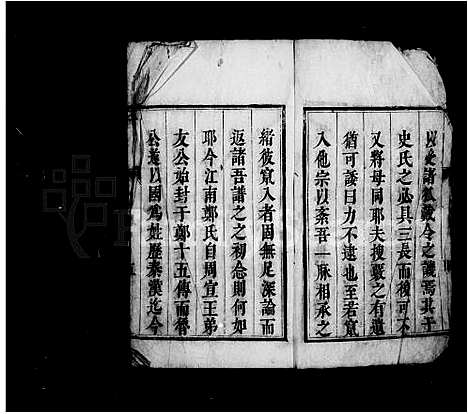 史氏之必具三長而後可不
又將毋同耶夫搜蒐之有遺
猶可諉曰力不逮也至若冒
入他宗以紊吾一脉相承之
緒彼冒入者固無足深論而
返諸吾譜之之初念則何如
耶今江南鄭氏自周宣王弟
友公始封于鄭十五傳而
公遂以國為姓歷秦漢迄今